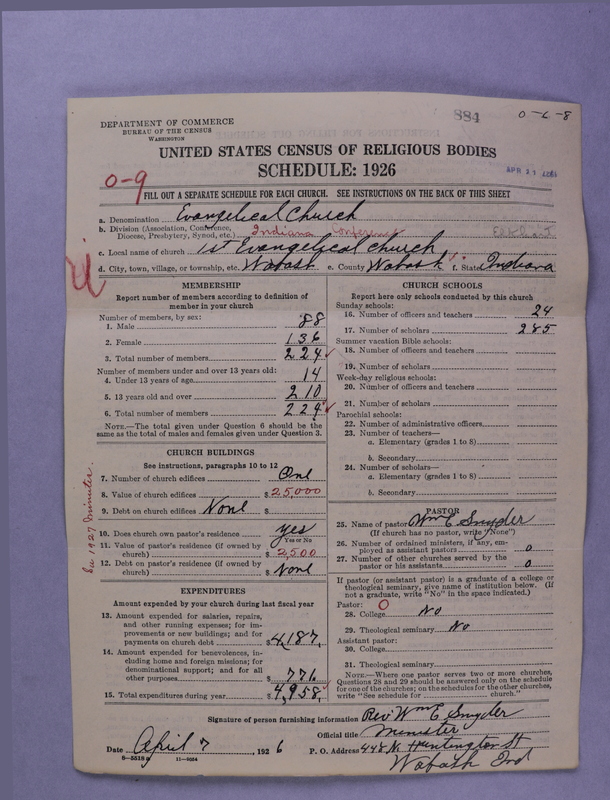 DEPARTMENT OF COMMERCE
BUREAU OF THE CENSUS
WASHINGTON
884
0-6-8
UNITED STATES CENSUS OF RELIGIOUS BODIES
SCHEDULE: 1926
APR 21
0-9
FILL OUT A SEPARATE SCHEDULE FOR EACH CHURCH. SEE INSTRUCTIONS ON THE BACK OF THIS SHEET
a. Denomination Evangelical Church
b. Division (Association, Conference, Diocese, Presbytery, Synod, etc.) Indiana Conference
c. Local name of church 1st Evangelical church
d. City, town, village, or township, etc. Wabash e. County Wabash f. State Indiana
MEMBERSHIP
Report number of members according to definition of
member in your church
Number of members, by sex:
1. Male 88
2. Female 136
3. Total number of members 224
Number of members under and over 13 years old:
4. Under 13 years of age 14
5. 13 years old and over 210
6. Total number of members 224
NOTE.—The total given under Question 6 should be the
same as the total of males and females given under Question 3.
CHURCH BUILDINGS
See instructions, paragraphs 10 to 12
7. Number of church edifices One
8. Value of church edifices $ 25,000
9. Debt on church edifices None $
See 1927 minutes.
10. Does church own pastor's residence? yes
Yes or No
11. Value of pastor's residence (if owned by
church) $ 2,500
12. Debt on pastor's residence (if owned by
church) $ None
EXPENDITURES
Amount expended by your church during last fiscal year
13. Amount expended for salaries, repairs,
and other running expenses; for im-
provements or new buildings; and for
payments on church debt $ 4,187.
14. Amount expended for benevolences, in-
cluding home and foreign missions; for
denominational support; and for all
other purposes $ 771.
15. Total expenditures during year $ 4,958.
CHURCH SCHOOLS
Report here only schools conducted by this church
Sunday schools:
16. Number of officers and teachers 24
17. Number of scholars 285
Summer vacation Bible schools:
18. Number of officers and teachers
19. Number of scholars
Week-day religious schools:
20. Number of officers and teachers
21. Number of scholars
Parochial schools:
22. Number of administrative officers
23. Number of teachers—
a. Elementary (grades 1 to 8)
b. Secondary
24. Number of scholars—
a. Elementary (grades 1 to 8)
b. Secondary
PASTOR
25. Name of pastor Wm E Snyder
(If church has no pastor, write "None")
26. Number of ordained ministers, if any, em-
ployed as assistant pastors 0
27. Number of other churches served by the
pastor or his assistants 0
If pastor (or assistant pastor) is a graduate of a college or
theological seminary, give name of institution below. (If
not a graduate, write "No" in the space indicated.)
Pastor: O
28. College No
29. Theological seminary No
Assistant pastor:
30. College
31. Theological seminary
NOTE.—Where one pastor serves two or more churches,
Questions 28 and 29 should be answered only on the schedule
for one of the churches; on the schedules for the other churches,
write "See schedule for church."
Signature of person furnishing information Rev Wm E Snyder
Official title Minister
Date April 7 1926 P. O. Address 448 N. Huntington St
8—5518a 11—9034
Wabash Ind